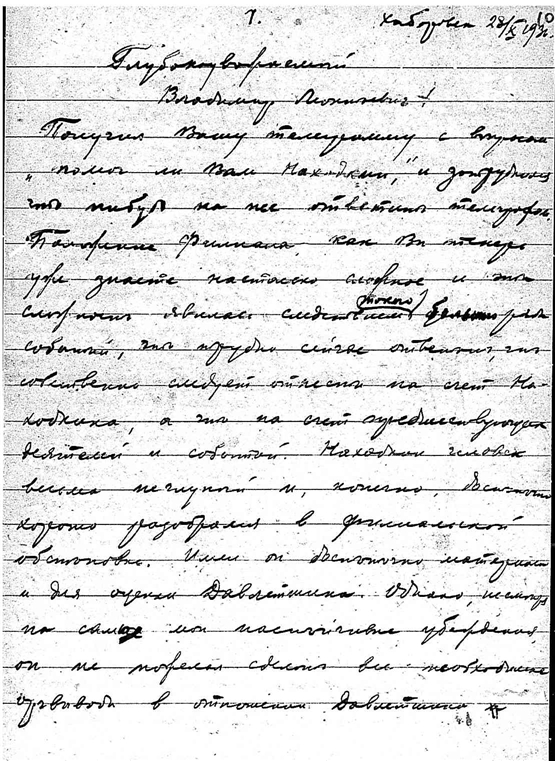 1.
Хабаровск 28/X 1936.
Глубокоуважаемый
Владимир Леонтьевич!
Получил Вашу телеграмму с вопросом
„помог ли Вам Находкин," и затрудняюсь
что нибудь на нее ответить телеграфом.
Положение Филиала, как Вы теперь
уже знаете настолько сложное и эта
сложность явилась следствием такого ряда
событий, что трудно сейчас ответить, что
собственно следует отнести на счет На-
ходкина, а что на счет предшествующих
деятелей и событий. Находкин человек
весьма неглупый и, конечно, достаточно
хорошо разобрался в филиальской
обстановке. Имел он достаточно материала
и для оценки Давлетшина. Однако, несмотря
на самые мои настойчивые убеждения
он не пожелал сделать все необходимые
выводы в отношении Давлетшина